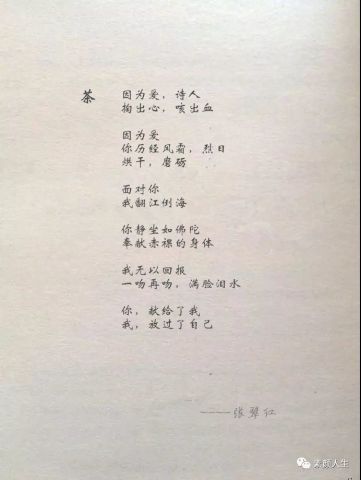 茶
因为爱，诗人
掏出心，咳出血
因为爱
你历经风霜，烈日
烘干，磨砺
面对你
我翻江倒海
你静坐如佛陀
奉献赤裸的身体
我无以回报
一吻再吻，满脸泪水
你，献给了我
我，放过了自己
——张翠红
素颜人生